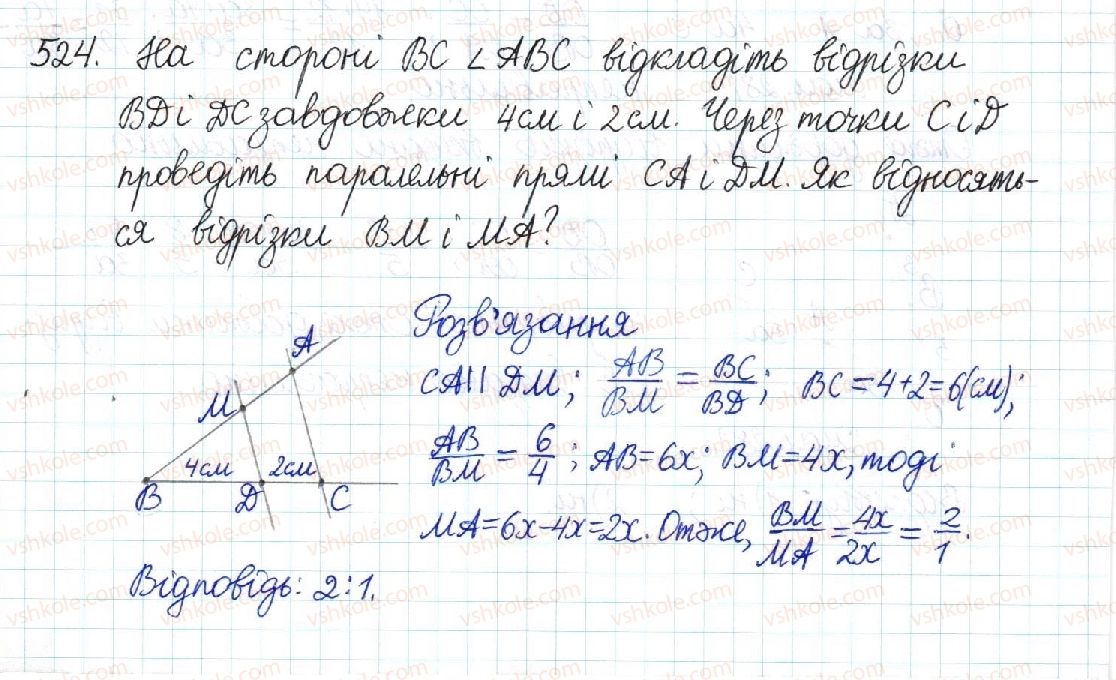 524. На стороні BC ∠ABC відкладіть відрізки
BD і DC завдовжки 4см і 2см. Через точки C і D
проведіть паралельні прямі CA і DM. Як відносять-
ся відрізки BM і MA?
Розв'язання
CA || DM; AB/BM = BC/BD; BC = 4+2=6(см);
AB/BM = 6/4; AB=6x; BM=4x, тоді
MA=6x-4x=2x. Отже, BM/MA = 4x/2x = 2/1.
A
M
4см 2см
B D C
Відповідь: 2:1.
vshkole.com